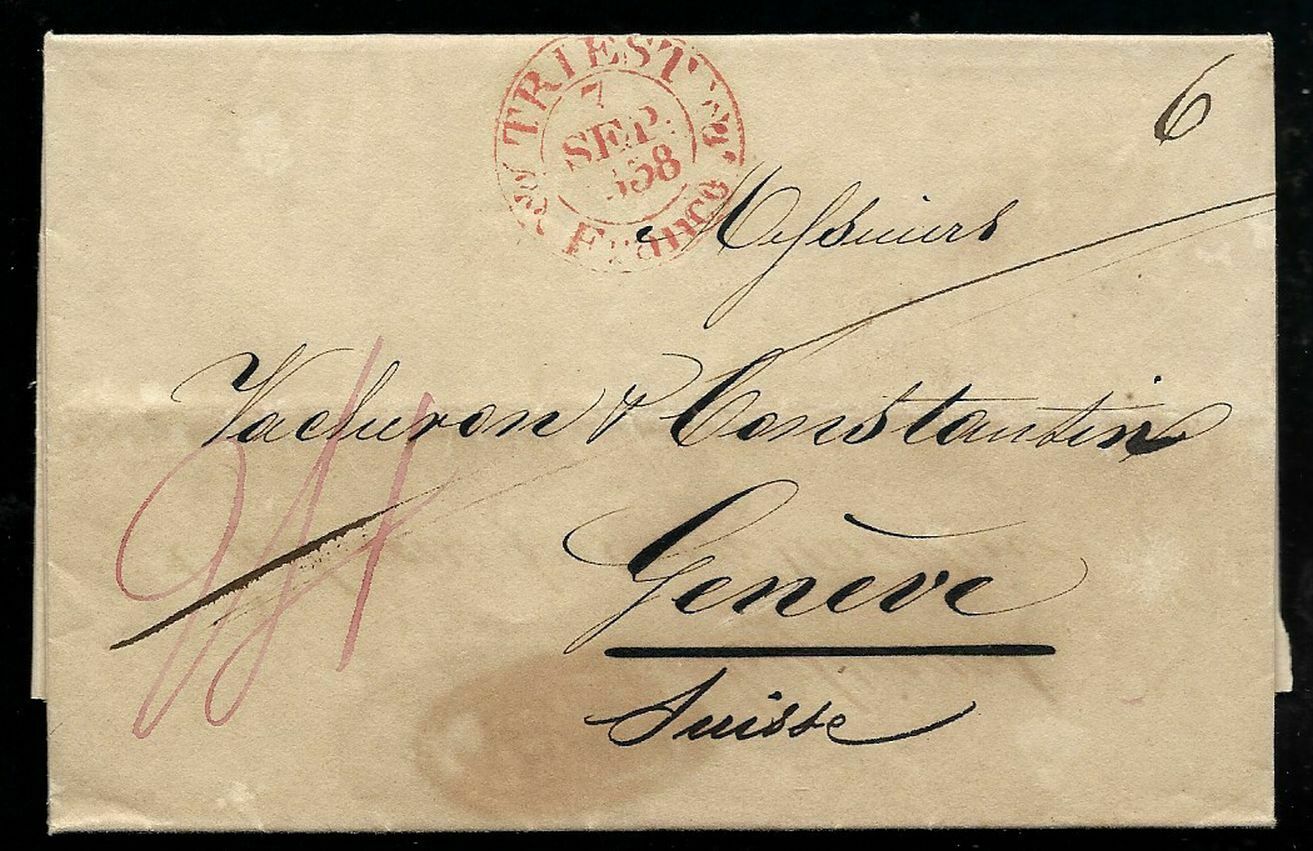 TRIEST
7
SEP.
858
Franco
6
Messieurs
Vacheron & Constantin
Genève
Suisse